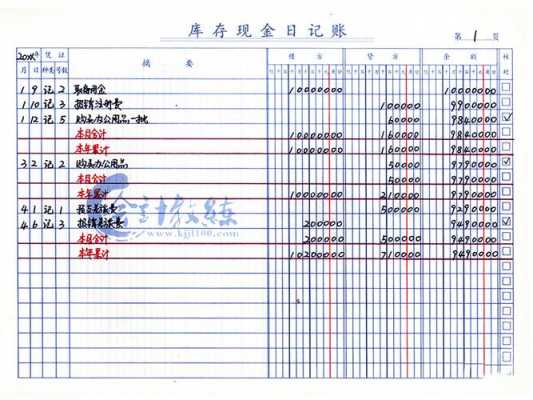 库存现金日记账
第 1 页
20XX年 凭证 摘要 借方 贷方 余额 核对
月 日 种类 号数
1 9 记 2 取备用金 1000000 1000000
1 10 记 3 报销注册费 100000 990000
1 12 记 5 购买办公用品一批 60000 984000 ✓
本月合计 1000000 160000 984000
本年累计 1000000 160000 984000
3 2 记 2 购买办公用品 50000 979000 ✓
本月合计 50000 979000
本年累计 1000000 210000 979000
4 1 记 1 差旅费 500000 929000
4 6 记 3 报销差旅费 200000 949000 ✓
本月合计 200000 500000 949000
本年累计 10200000 710000 949000
会计教练
www.kjjl100.com